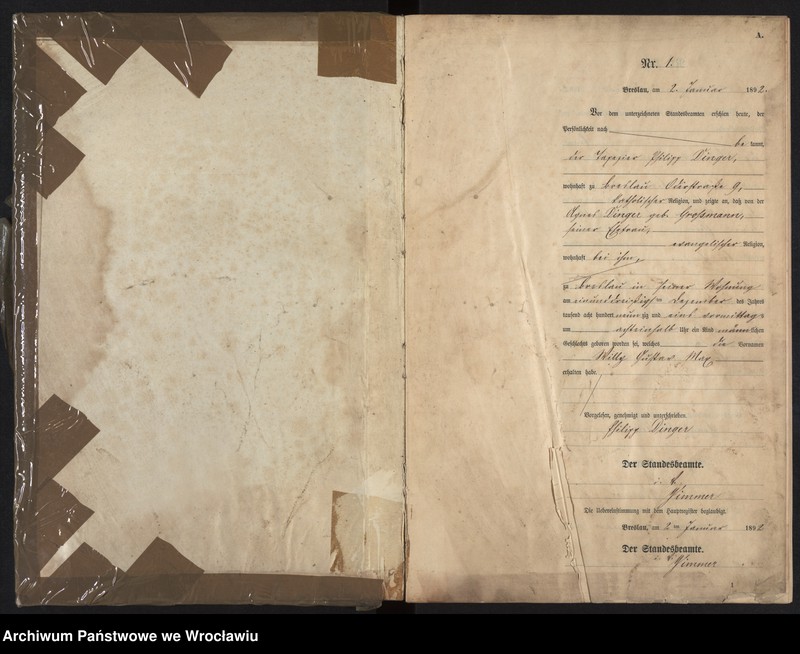 A.
Nr. 1.
Breslau, am 2. Januar 1892.
Vor dem unterzeichneten Standesbeamten erschien heute, der
Persönlichkeit nach
be kannt,
der Tapezier Philipp Dinger,
wohnhaft zu Breslau 9,
katholischer Religion, und zeigte an, daß von der
Agnes Dinger geb. Grossmann,
seiner Ehefrau,
evangelischer Religion,
wohnhaft bei ihm,
zu Breslau in seiner Wohnung
am einunddreißigsten Dezember des Jahres
tausend acht hundert neunzig und eins vormittags
um achteinhalb Uhr ein Kind männlichen
Geschlechts geboren worden sei, welches die Vornamen
Willy Gustav Max
erhalten habe.
Vorgelesen, genehmigt und unterschrieben.
Philipp Dinger
Der Standesbeamte.
Die Uebereinstimmung mit dem Hauptregister beglaubigt.
Breslau, am 2ten Januar 1892
Der Standesbeamte.
1
Archiwum Państwowe we Wrocławiu